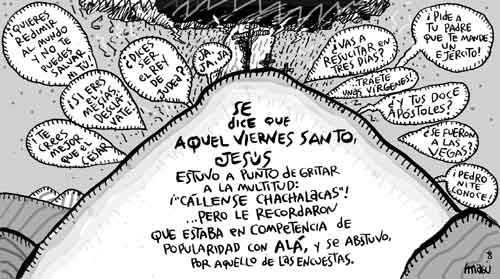 ¿QUIERES
REDIMIR
AL MUNDO
Y NO TE
PUEDES
SALVAR
TÚ?
¡SI ERES
EL
MESÍAS,
DESCLA-
VATE!
¿TE
CREES
MEJOR
QUE EL
CESAR?
¿DICES
SER
EL REY
DE
JUDEA?
JA
JA JA
¿VAS A
RESUCITAR EN
TRES DÍAS?
¡TRÁETE
UNAS VÍRGENES!
¡PIDE A
TU PADRE
QUE TE MANDE
UN
EJÉRCITO!
¿Y TUS DOCE
APÓSTOLES?
¿SE
FUERON
A LAS
VEGAS?
¡PEDRO
NI TE
CONOCE!
SE
DICE QUE
AQUEL VIERNES SANTO,
JESÚS
ESTUVO A PUNTO DE GRITAR
A LA MULTITUD:
¡"CÁLLENSE CHACHALACAS"!
...PERO LE RECORDARON
QUE ESTABA EN COMPETENCIA DE
POPULARIDAD CON ALÁ, Y SE ABSTUVO,
POR AQUELLO DE LAS ENCUESTAS.